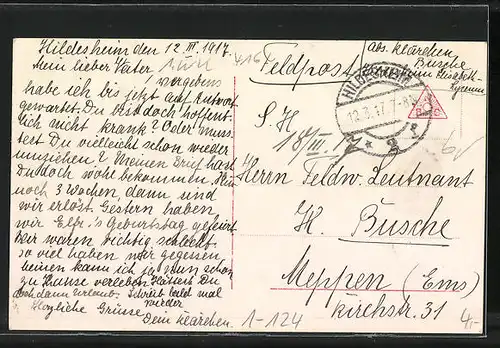 Hildesheim den 12. III. 1917.
Mein lieber Vater
vergebens
habe ich bis jetzt auf Antwort
gewartet. Du bist doch hoffent-
lich nicht krank? Oder muss-
test Du vielleicht schon wieder
umziehen? Meinen Brief hast
Du doch wohl bekommen. Nun
noch 3 Wochen, dann sind
wir erlöst. Gestern haben
wir Elfr.'s Geburtstag gefeiert
Wir waren richtig schlecht.
so viel haben wir gegessen,
meinen kann ich ja nun schon
zu Hause verleben. Hättest Du
doch dann Urlaub. Schreib bald mal
wieder
Herzliche Grüsse
Dein Klärchen.
416
Feldpost
abs. Klärchen
Busche
Lyzeum
HILDESHEIM
12.3.17. 7-8
S H
18/III. 17
Herrn Feldw. Leutnant
H. Busche
Meppen (Ems)
Kirchstr. 31
1-124
4.-